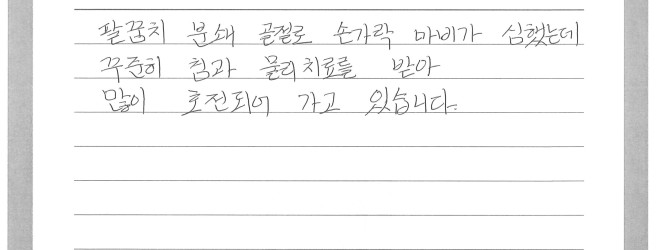 팔꿈치 분쇄 골절로 손가락 마비가 심했는데
꾸준히 침과 물리치료를 받아
많이 호전되어 가고 있습니다.